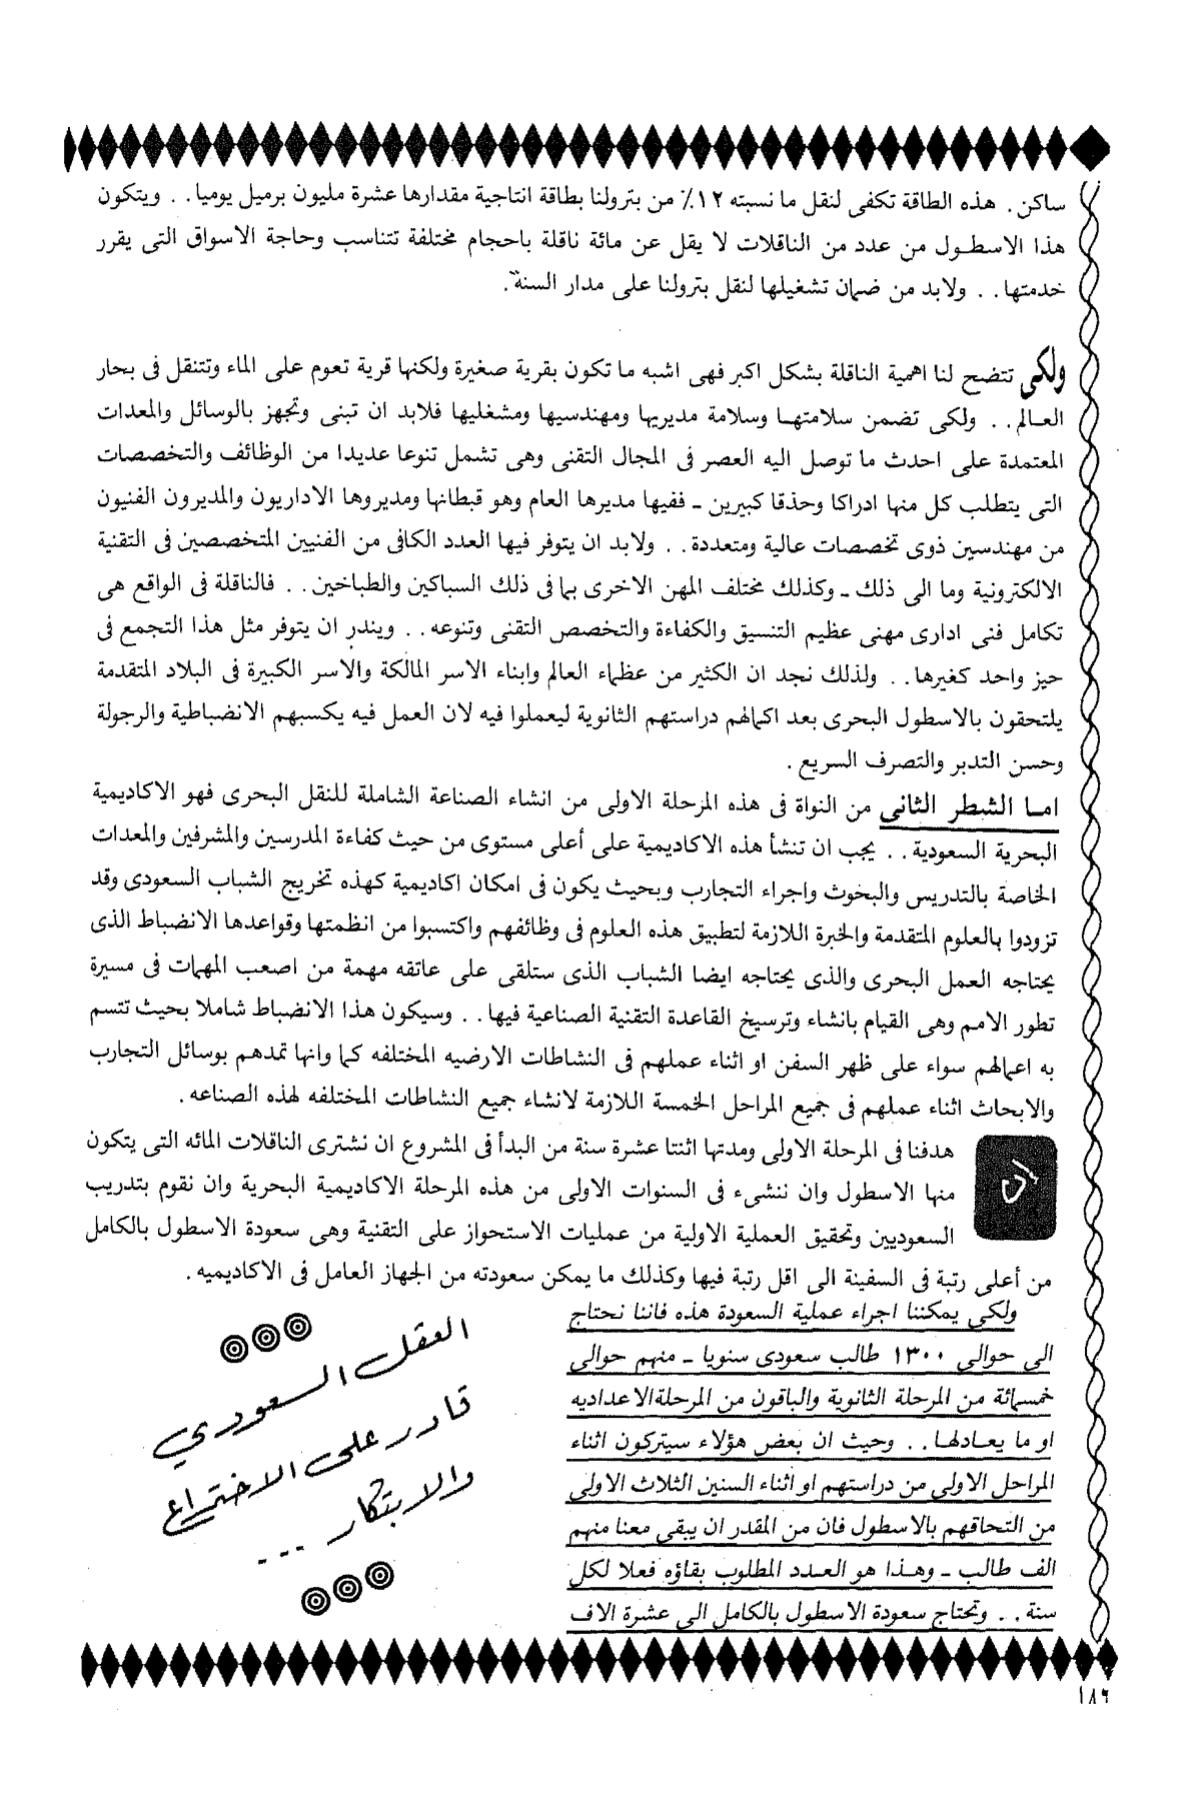 ساكن. هذه الطاقة تكفى لنقل ما نسبته ١٢٪ من بترولنا بطاقة انتاجية مقدارها عشرة مليون برميل يوميا. . ويتكون
هذا الاسطول من عدد من الناقلات لا يقل عن مائة ناقلة باحجام مختلفة تتناسب وحاجة الاسواق التى يقرر
خدمتها. . ولابد من ضمان تشغيلها لنقل بترولنا على مدار السنة".
ولكى تتضح لنا اهمية الناقلة بشكل اكبر فهى اشبه ما تكون بقرية صغيرة ولكنها قرية تعوم على الماء وتتنقل فى بحار
العالم. . ولكى تضمن سلامتها وسلامة مديريها ومهندسيها ومشغليها فلابد ان تبنى وتجهز بالوسائل والمعدات
المعتمدة على احدث ما توصل اليه العصر فى المجال التقنى وهى تشمل تنوعا عديدا من الوظائف والتخصصات
التى يتطلب كل منها ادراكا وحذقا كبيرين ـ ففيها مديرها العام وهو قبطانها ومديروها الاداريون والمديرون الفنيون
من مهندسين ذوى تخصصات عالية ومتعددة. . ولابد ان يتوفر فيها العدد الكافى من الفنيين المتخصصين فى التقنية
الالكترونية وما الى ذلك ـ وكذلك مختلف المهن الاخرى بما فى ذلك السباكين والطباخين. . فالناقلة فى الواقع هى
تكامل فنى ادارى مهنى عظيم التنسيق والكفاءة والتخصص التقنى وتنوعه. . ويندر ان يتوفر مثل هذا التجمع فى
حيز واحد كغيرها. . ولذلك نجد ان الكثير من عظماء العالم وابناء الاسر المالكة والاسر الكبيرة فى البلاد المتقدمة
يلتحقون بالاسطول البحرى بعد اكمالهم دراستهم الثانوية ليعملوا فيه لان العمل فيه يكسبهم الانضباطية والرجولة
وحسن التدبر والتصرف السريع .
اما الشطر الثانى من النواة فى هذه المرحلة الاولى من انشاء الصناعة الشاملة للنقل البحرى فهو الاكاديمية
البحرية السعودية. . يجب ان تنشأ هذه الاكاديمية على أعلى مستوى من حيث كفاءة المدرسين والمشرفين والمعدات
الخاصة بالتدريس والبخوث واجراء التجارب وبحيث يكون فى امكان اكاديمية كهذه تخريج الشباب السعودى وقد
تزودوا بالعلوم المتقدمة والخبرة اللازمة لتطبيق هذه العلوم فى وظائفهم واكتسبوا من انظمتها وقواعدها الانضباط الذى
يحتاجه العمل البحرى والذى يحتاجه ايضا الشباب الذى ستلقى على عاتقه مهمة من اصعب المهمات فى مسيرة
تطور الامم وهى القيام بانشاء وترسيخ القاعدة التقنية الصناعية فيها. . وسيكون هذا الانضباط شاملا بحيث تتسم
به اعمالهم سواء على ظهر السفن او اثناء عملهم فى النشاطات الارضيه المختلفه كما وانها تمدهم بوسائل التجارب
والابحاث اثناء عملهم فى جميع المراحل الخمسة اللازمة لانشاء جميع النشاطات المختلفه لهذه الصناعه .
ان هدفنا فى المرحلة الاولى ومدتها اثنتا عشرة سنة من البدأ فى المشروع ان نشترى الناقلات المائه التى يتكون
منها الاسطول وان ننشىء فى السنوات الاولى من هذه المرحلة الاكاديمية البحرية وان نقوم بتدريب
السعوديين وتحقيق العملية الاولية من عمليات الاستحواز على التقنية وهى سعودة الاسطول بالكامل
من أعلى رتبة فى السفينة الى اقل رتبة فيها وكذلك ما يمكن سعودته من الجهاز العامل فى الاكاديميه .
ولكى يمكننا اجراء عملية السعودة هذه فاننا نحتاج
الى حوالى ١٣٠٠ طالب سعودى سنويا ـ منهم حوالى
خمسمائة من المرحلة الثانوية والباقون من المرحلة الاعداديه
او ما يعادلها. . وحيث ان بعض هؤلاء سيتركون اثناء
المراحل الاولى من دراستهم او اثناء السنين الثلاث الاولى
من التحاقهم بالاسطول فان من المقدر ان يبقى معنا منهم
الف طالب ـ وهذا هو العدد المطلوب بقاؤه فعلا لكل
سنة. . وتحتاج سعودة الاسطول بالكامل الى عشرة الاف
العقل السعودي
قادر على الاختراع
والابتكار ...
١٨٦